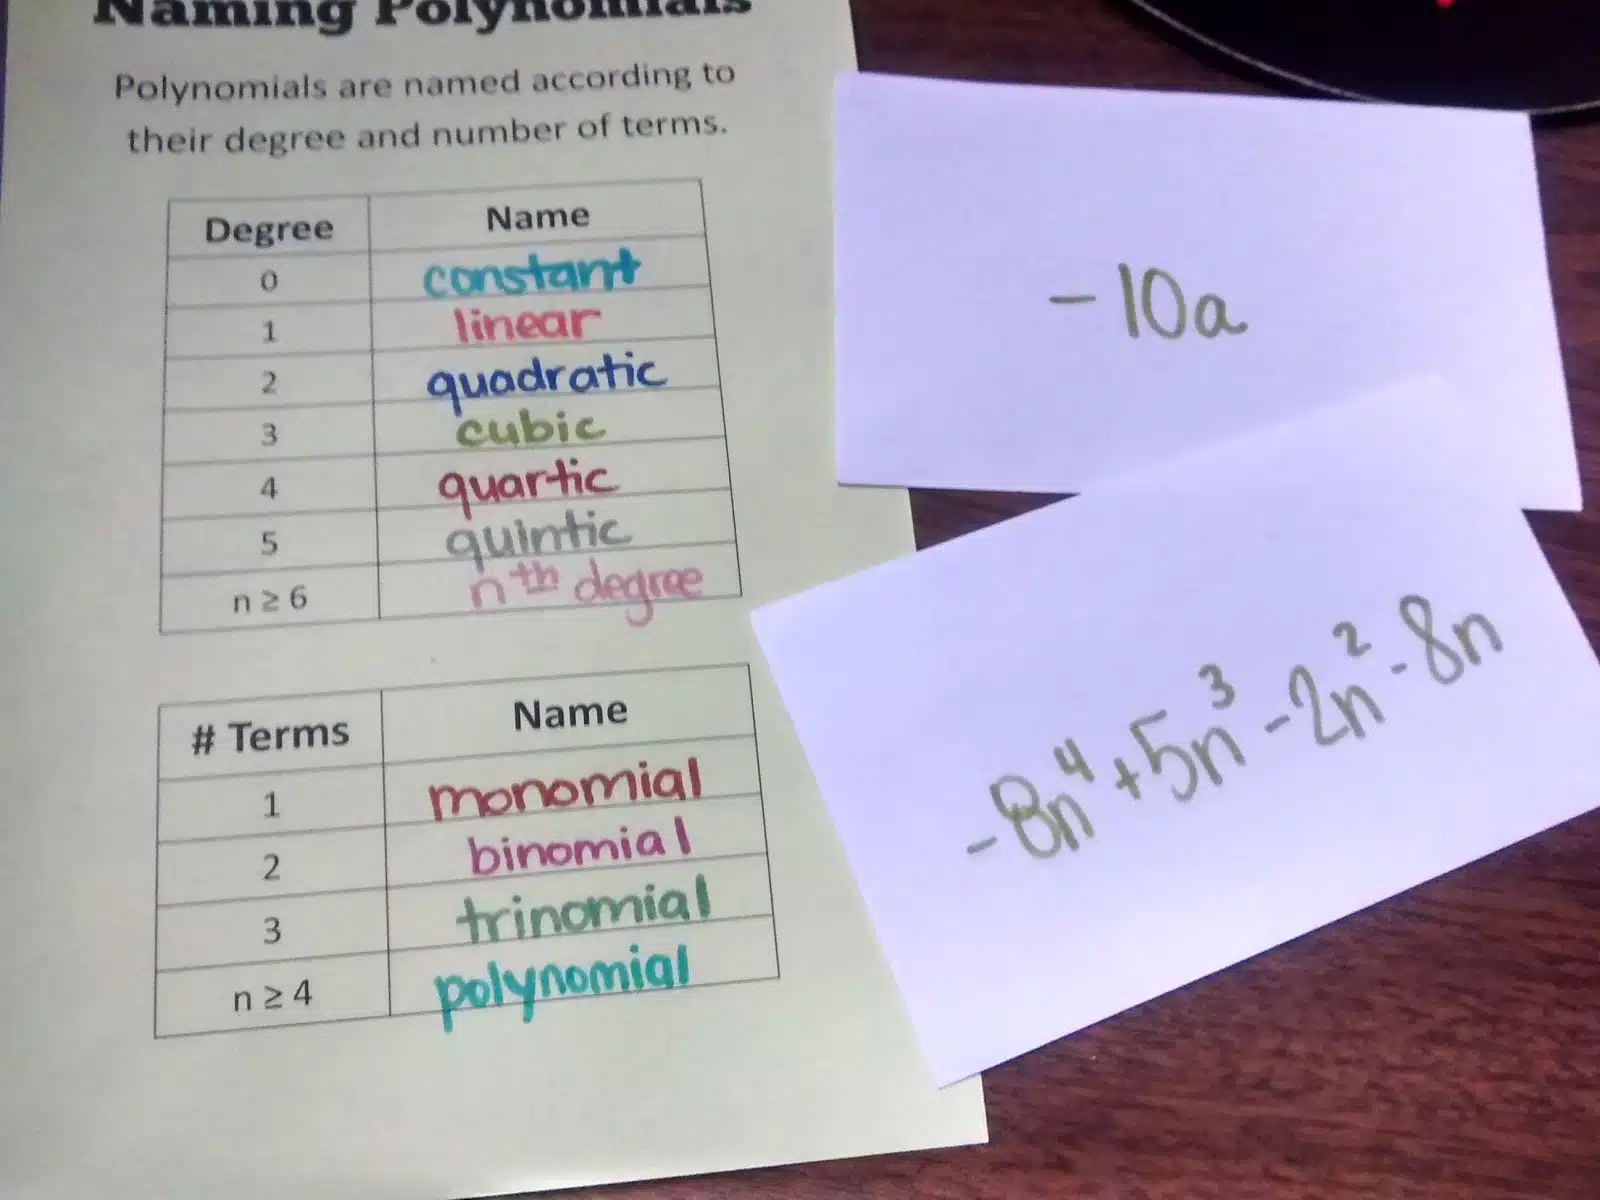 Naming Polynomials
Polynomials are named according to
their degree and number of terms.
Degree Name
0 constant
1 linear
2 quadratic
3 cubic
4 quartic
5 quintic
n ≥ 6 nth degree
# Terms Name
1 monomial
2 binomial
3 trinomial
n ≥ 4 polynomial
-10a
-8n⁴+5n³-2n²-8n